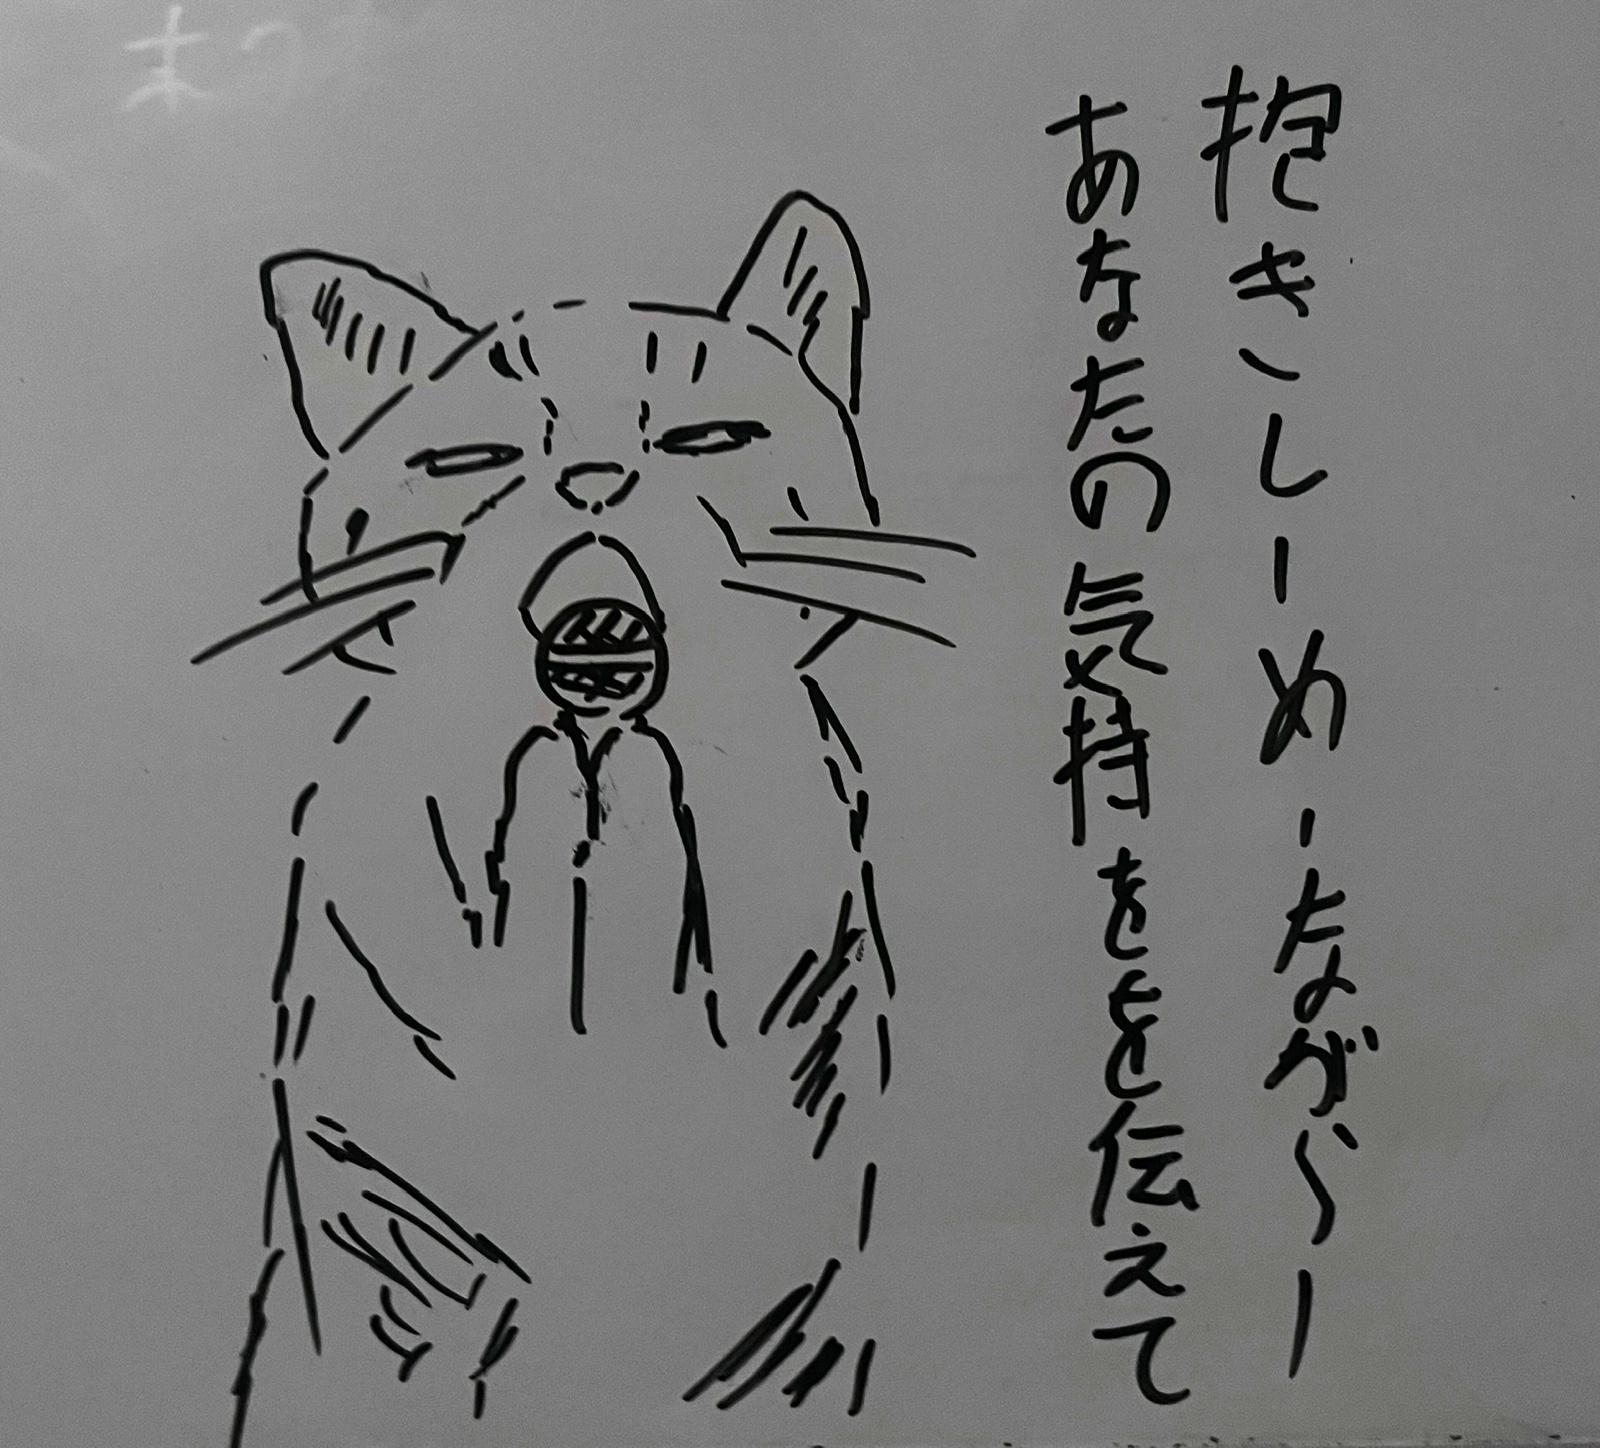 抱きしーめーながらー
あなたの気持をを伝えて